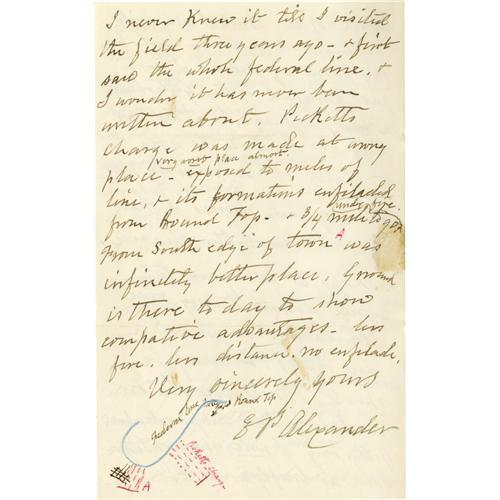 I never knew it till I visited
the field three years ago - & first
saw the whole federal line, &
I wonder it has never been
written about. Picketts
charge was made at wrong
very worst place almost.
place - exposed to miles of
line, & its formations enfiladed
under fire.
from Round Top - & 3/4 mile to go
A
From South edge of town was
infinitely better place, Ground
is there to day to show
compative advantages - less
fire, less distance, no enfilade.
Very sincerely yours
E P Alexander
Federal line
Round Top
Picketts charge
A